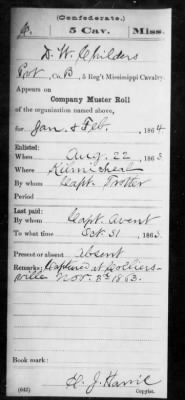 (Confederate.)
C. 5 Cav. Miss.
D. W. Childers
Pvt, Co. B, 5 Reg't Mississippi Cavalry.
Appears on
Company Muster Roll
of the organization named above,
for Jan & Feb, 1864
Enlisted:
When Aug. 22 1863
Where Kilmicheal
By whom Capt. Trotter
Period
Last paid:
By whom Capt. Avent
To what time Oct. 31, 1863.
Present or absent Absent
Remarks: Captured at Colliers-
ville Nov. 3rd 1863.
Book mark:
J. Harric
(642) Copyist.